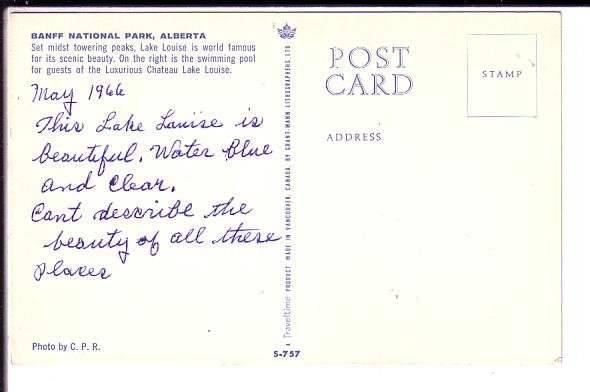 BANFF NATIONAL PARK, ALBERTA
Set midst towering peaks, Lake Louise is world famous
for its scenic beauty. On the right is the swimming pool
for guests of the Luxurious Chateau Lake Louise.
May 1966
This Lake Louise is
beautiful. Water Blue
and Clear.
Cant describe the
beauty of all these
places
Photo by C. P. R.
A Traveltime PRODUCT MADE IN VANCOUVER, CANADA, BY GRANT-MANN LITHOGRAPHERS LTD
S-757
POST
CARD
ADDRESS
STAMP